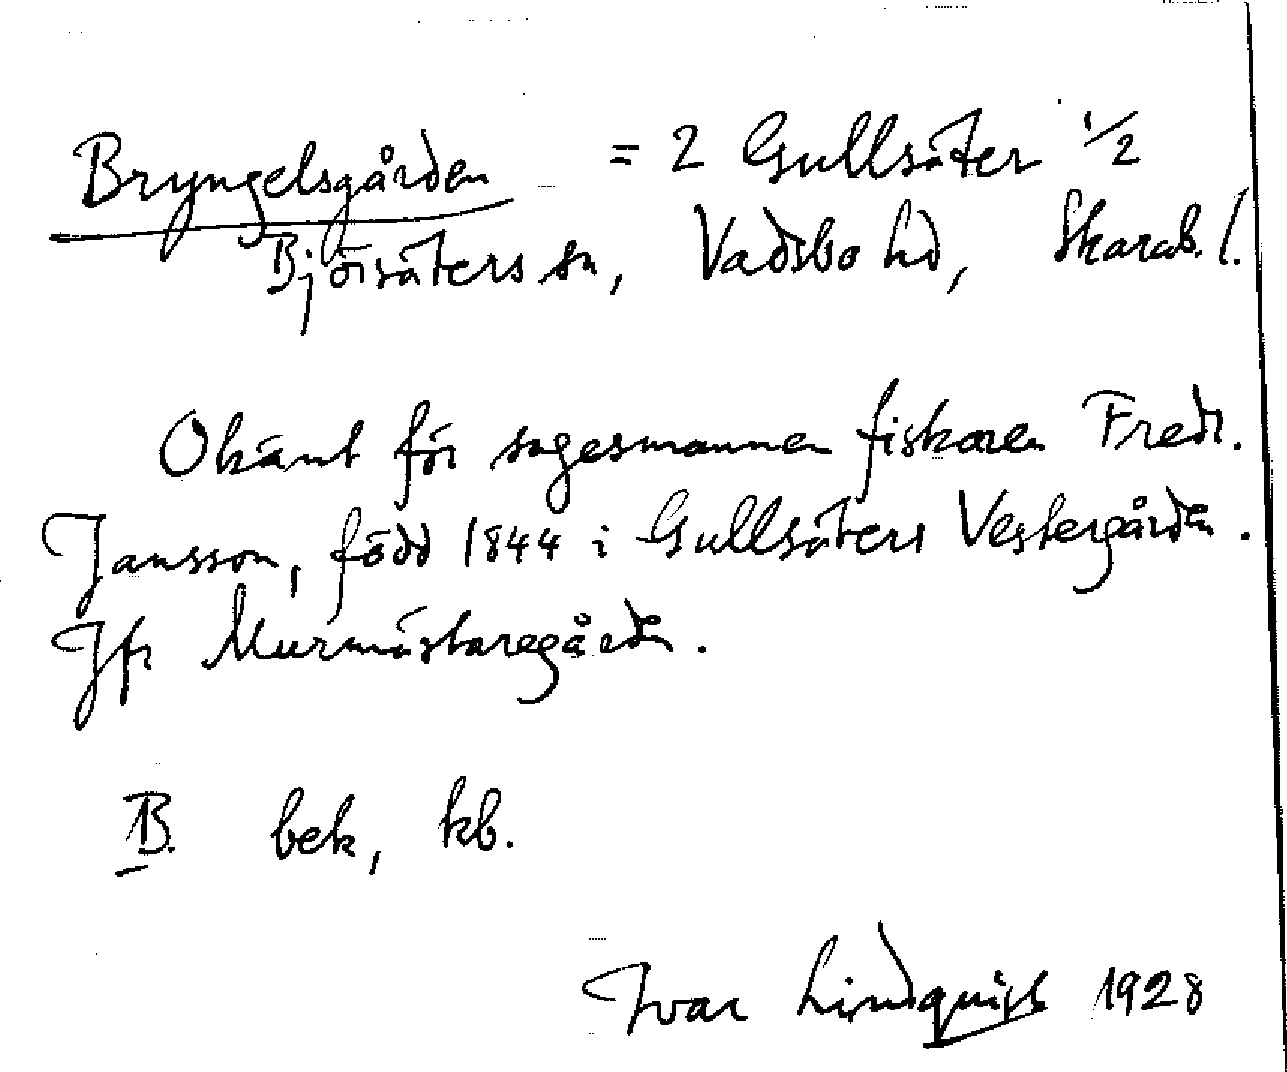 Bryngelsgården = 2 Gullsäter 1/2
Björsäters sn, Vadsbo hd, Skarab. l.
Okänt för sagesmannen fiskaren Fredr.
Jansson, född 1844 i Gullsäters Vestergården.
Jfr Murmästaregården.
B. bek, kb.
Ivar Lindquist 1928